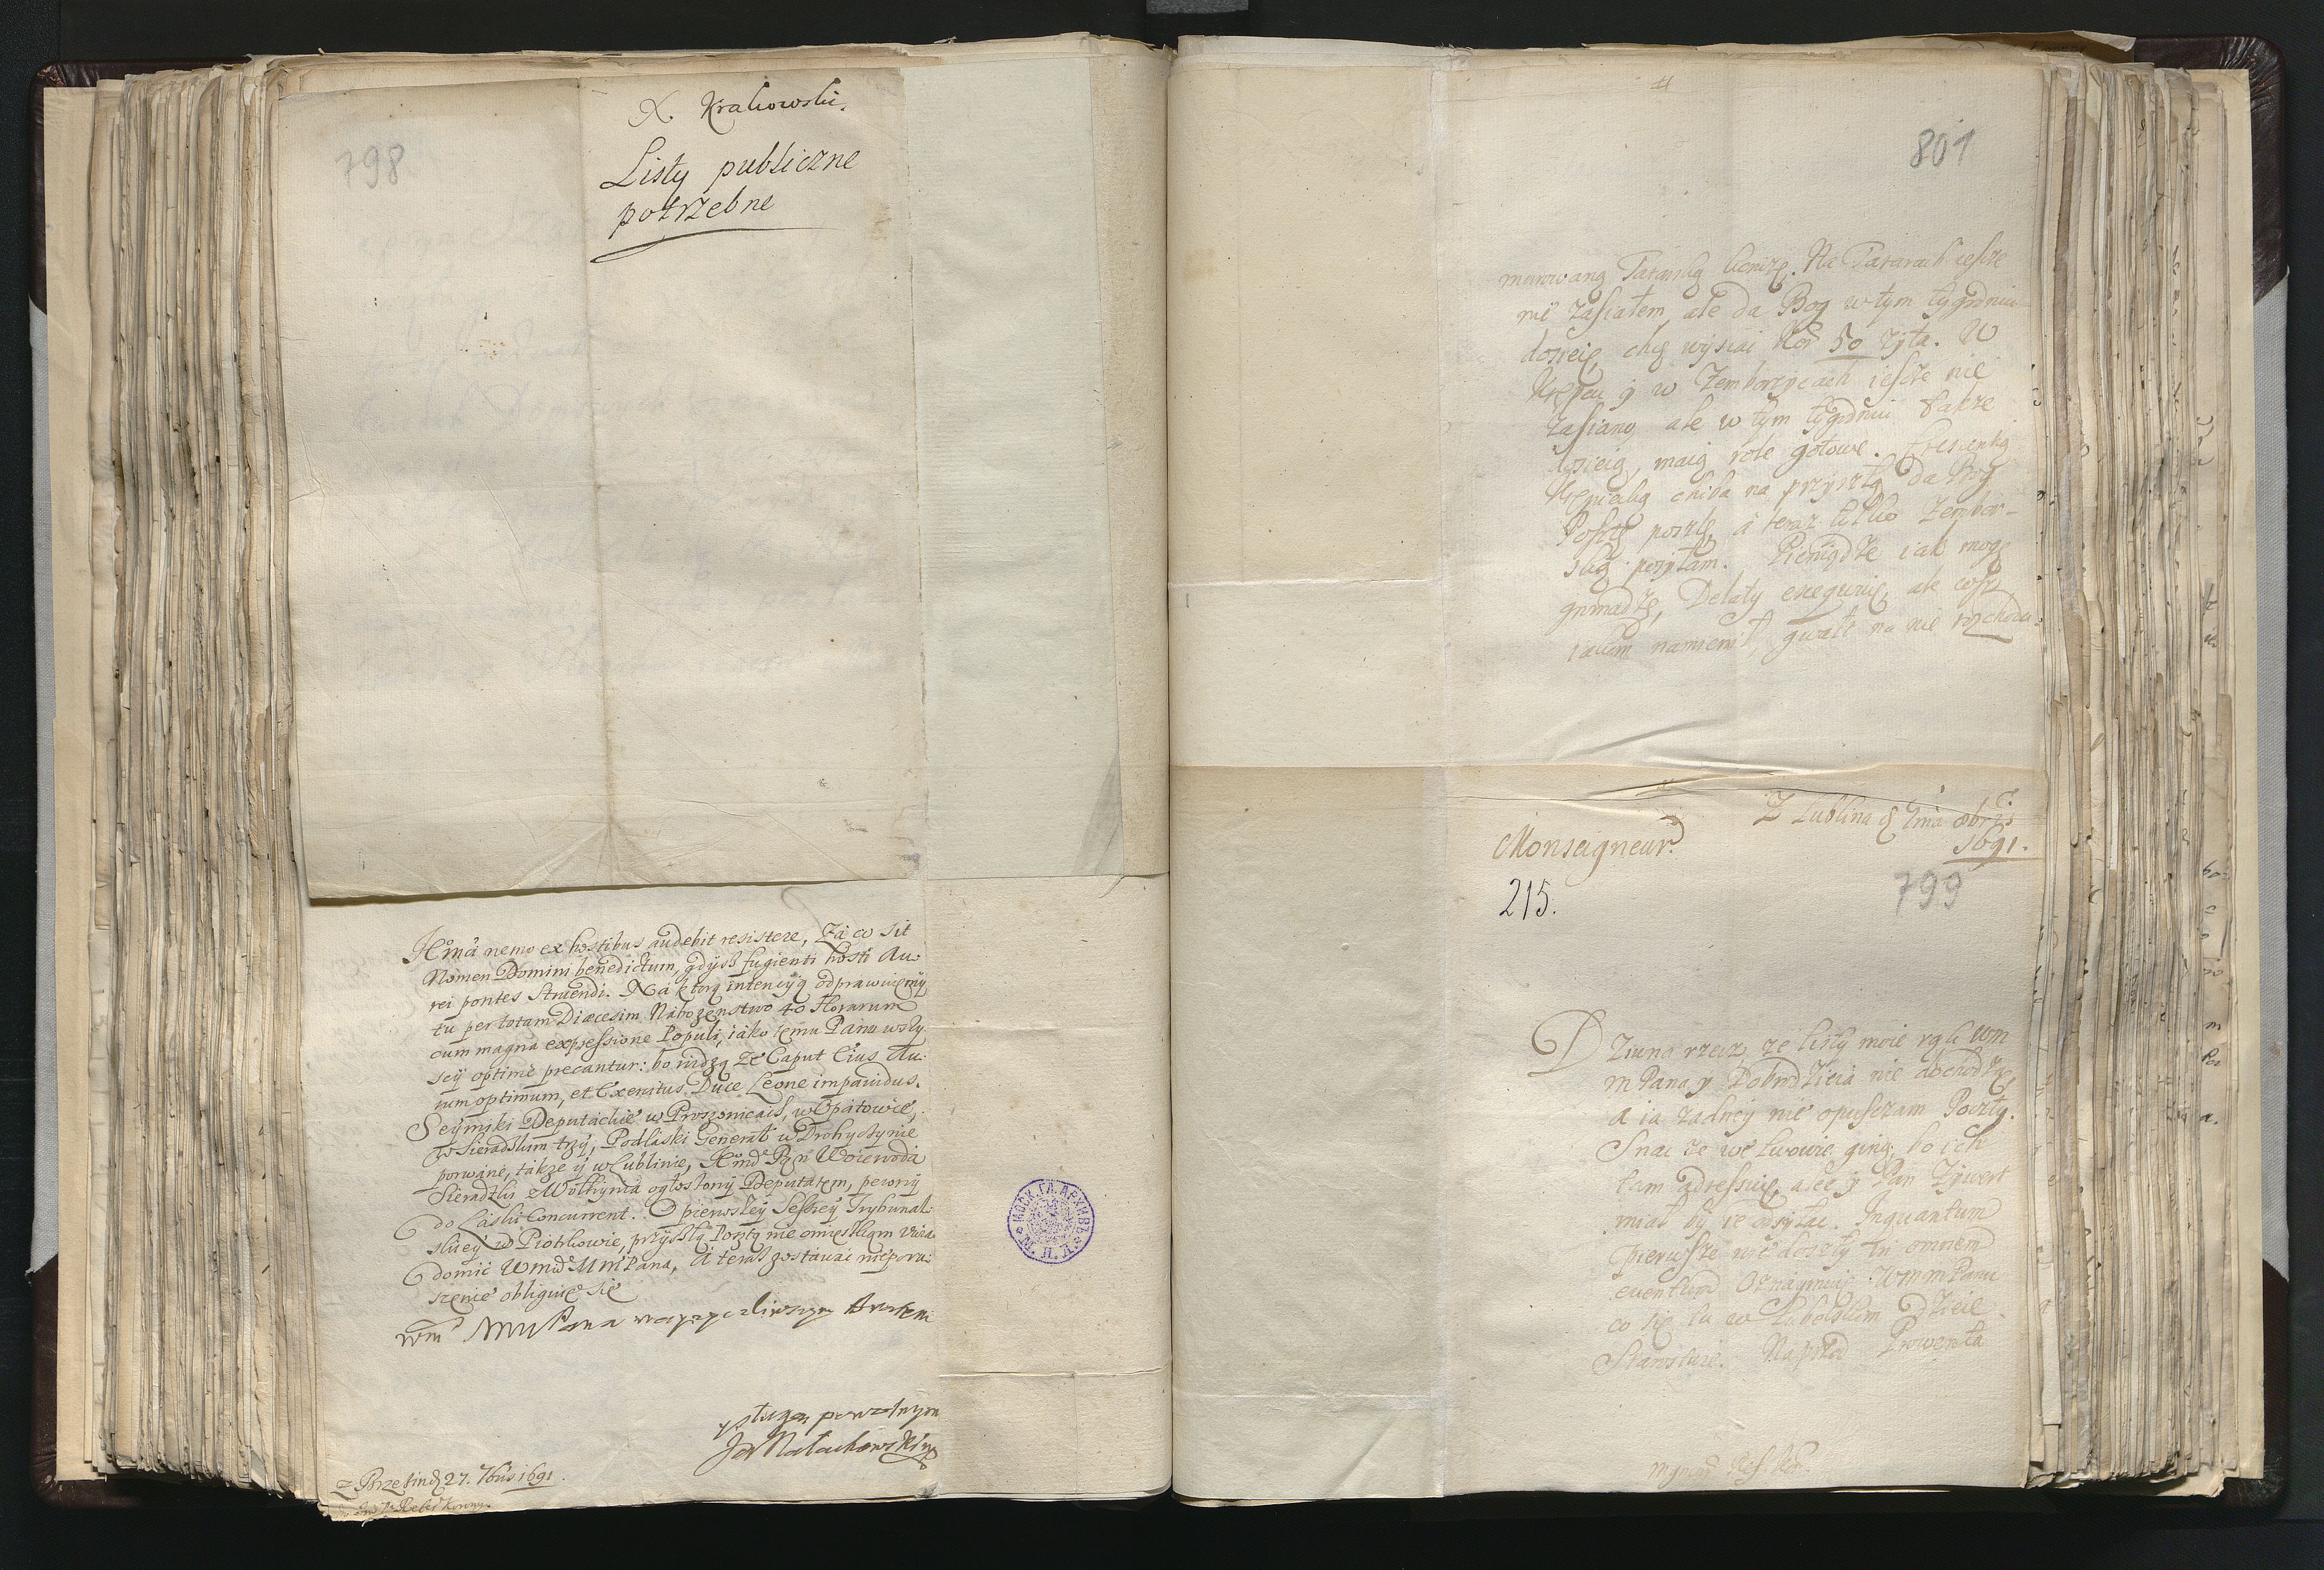 798
X. Krakowski.
Listy publiczne
potrzebne
nemo ex hostibus audebit resistere, Za co sit
Nomen Domini benedictum, gdysz fugienti hosti Au-
rei pontes struendi. Na ktorą intencyią odprawuięmy
tu per totam Diæcesim Nabożenstwo 40 Horarum
cum magna expressione Populi, iako temu Panu wszy
scÿ optimè precantur: bo widzą że Caput Eius Au-
rum optimum, et Exercitus Duce Leone impavidus.
Seÿmiki Deputackie w Proszowicach, w Opatowie,
w Sieradzkim trzÿ, Podlaski Generał w Drohyczynie
porwane, także ÿ w Lublinie, Woiewoda
Sieradzki z Wołhynia ogłoszonÿ Deputatem, pewnÿ
do Laski Concurrent. O pierwszeÿ Sessieÿ Trybunal-
skieÿ w Piotrkowie, przyszłą Posztą nie omięszkam uwia-
domić Wmć MmPana, A teraz zostawać nieporu-
szenie obliguię się
Wm MmPana nayzyczliwszym Bratem
y sługą powolnym
Jan Małachowski
z Brzezin d 27. 7bris 1691.
МОСК. ГЛ. АРХИВЪ
М. И. Д.
801
Tatarską kończę. Na Tatarach iescze
nie zasiałem, ale da Bog w tym tygodniu
dosieię, chcę wysiać Kor 50 żyta. W
Krępcu y w Zemborzycach iescze nie
zasiano, ale w tym tygodniu także
dosieią, maią role gotowe. Krescentią
Krępiecką chiba na przyszłą da Bog
Posztę poszlę, a teraz tylko Zembor-
ską posyłam. Pieniądze iak mogę
gromadzę, Delaty exequuię, ale cosz
iakom namienił, gwałt na nie rozchodu.
Z Lublina d 1ma 8bris
1691.
Monseigneur.
215.
799
Dziwna rzecz, że listy moie rąk Wm
mPana y Dobrodzieia nie dochodzą,
a ia żadney nie opuszczam Poczty.
Snac że we Lwowie giną, bo ich
tam adressuię, alec y Pan
miał by ie odsyłac. Inquantum
pierwsze nie doszły in omnem
eventum Oznaymuię WmmPanu
co się tu w Lubelskim dzieie
Starostwie. Naprzod Prowenta